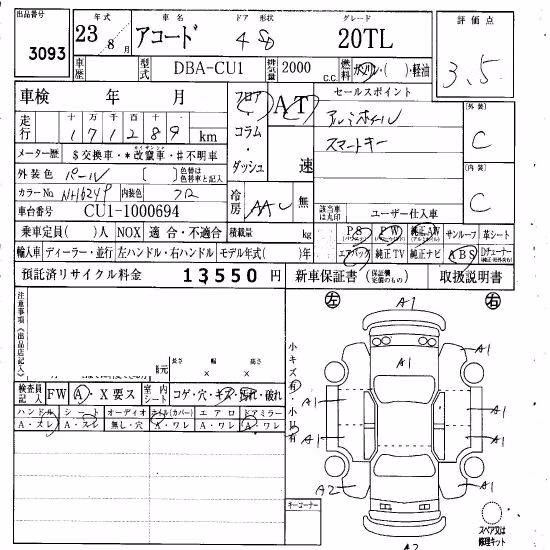 出品番号 3093
年式 23 8月
車名 アコード
ドア 形状 4 SD
グレード 20TL
評価点 3.5
車歴
型式 DBA-CU1
排気量 2000 c.c.
燃料 ガソリン・( )・軽油
車検 年 月
フロア・コラム・ダッシュ
AT 速
セールスポイント
アルミホイール
スマートキー
外装 C
内装 C
走行 十万千百十 171289 km
メーター歴 $交換車・*改竄車・#不明車
外装色 パール [ ] 色替は色替車と記入
カラーNo. NH624P 内装色 クロ
冷房 AAC 無
車台番号 CU1-1000694
該当車は丸印 ユーザー仕入車
乗車定員( )人 NOX 適合・不適合 積載量 kg
PS PW 純正AW サンルーフ 革シート
輸入車 ディーラー・並行 左ハンドル・右ハンドル モデル年式( )年
エアバック 純正TV 純正ナビ ABS Dチューナー
預託済リサイクル料金 13550円 新車保証書 (保証機定備のもの) 取扱説明書
注意事項 (出品店記入)
長さ × 幅 × 高さ
検査員記入 FW A・X要ス 室内シート コゲ・穴・キズ・汚れ・破れ
ハンドル シート オーディオ エアロ ドアミラー
A・スレ A・スレ 無し・穴 A・ワレ A・ワレ A・ワレ
左 右
小キズ有 小凹有
A1
A1
A1
A1
A1
A1
A1
A1
A1
A2
A1
A2
キーコーナー
スペア又は修理キット